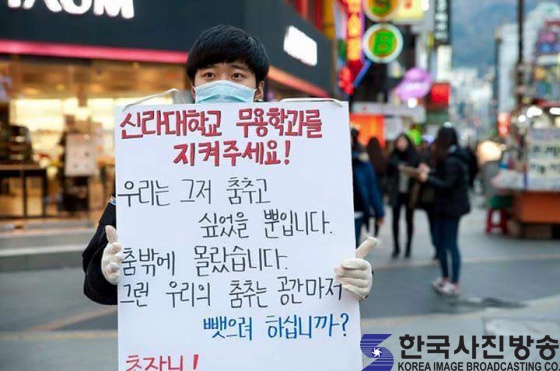 신라대학교 무용학과를
지켜주세요!
우리는 그저 춤추고
싶었을 뿐입니다.
춤밖에 몰랐습니다.
그런 우리의 춤추는 공간마저
뺏으려 하십니까?
총장님!
한국사진방송
KOREA IMAGE BROADCASTING CO